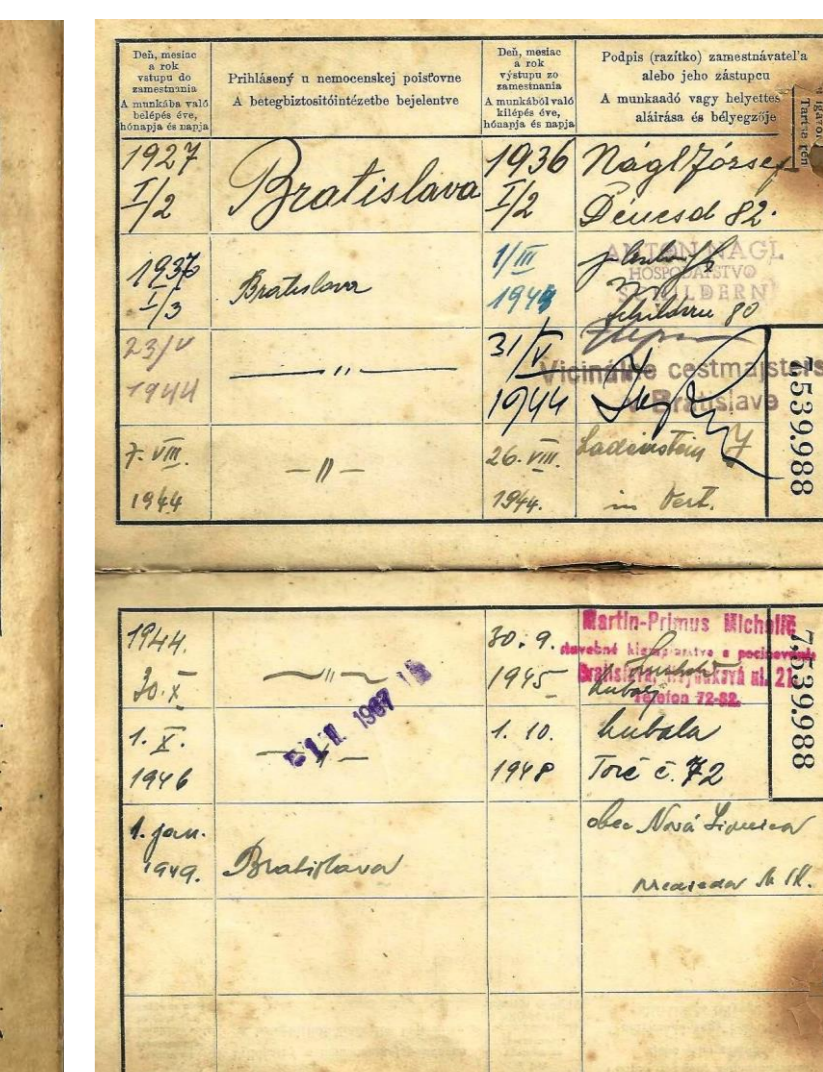 Deň, mesiac
a rok
vstupu do
zamestnania
A munkába való
belépés éve,
hónapja és napja
Prihlásený u nemocenskej poisťovne
A betegbiztositóintézetbe bejelentve
Deň, mesiac
a rok
výstupu zo
zamestnania
A munkából való
kilépés éve,
hónapja és napja
Podpis (razítko) zamestnávateľa
alebo jeho zástupcu
A munkaadó vagy helyettes
aláirása és bélyegzője
1927
I/2
Bratislava
1936
I/2
Nágl József
Dévcsd 82.
1936
I/3
Bratislava
1/III
194
ANTON NAGL
HOSPODÁRSTVO
SCHILDERN
Schildern 80
23/V
1944
— " —
31/V
1944
Vicinálne cestmajsters
Bratislave
7. VIII.
1944
— " —
26. VIII.
1944.
Ladenstein J
in Vert.
7,539.988
1944.
30. X
— " —
30. 9.
1945
Martin-Primus Micholič
stavebné klampiarstvo a
Bratislava, ul. 21
Telefon 72-82.
1. X.
1946
— " —
1. 10.
1948
kubala
Torč č. 72
1. jan.
1949.
Bratislava
obec Nová
7,539.988